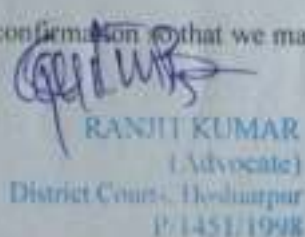 confirmation so that we ma
RANJIT KUMAR
(Advocate)
District Courts, Hoshiarpur
P/1451/1998